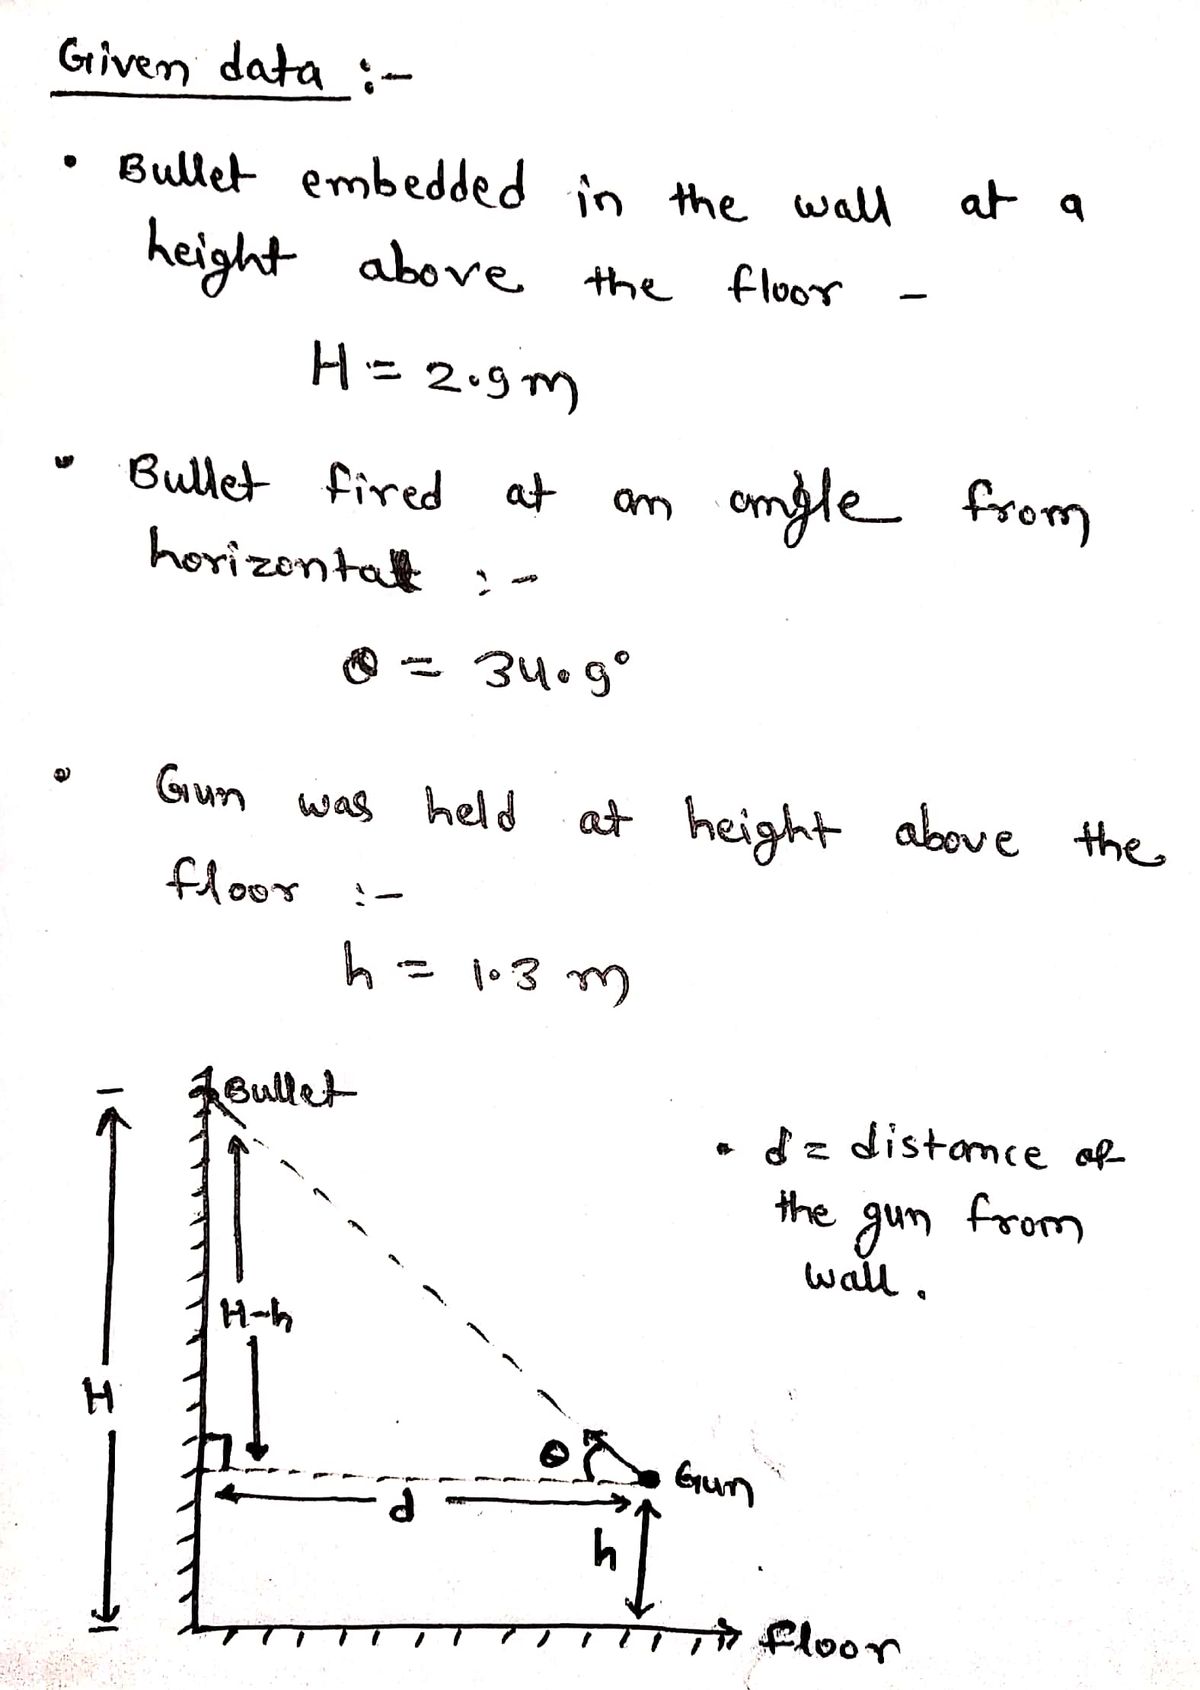 Given data :-
• Bullet embedded in the wall at a
height above the floor -
H = 2.9 m
• Bullet fired at an angle from
horizontal :-
θ = 34.9°
• Gun was held at height above the
floor :-
h = 1.3 m
Bullet
• d = distance of
the gun from
wall.
H-h
H
θ
Gun
d
h
floor